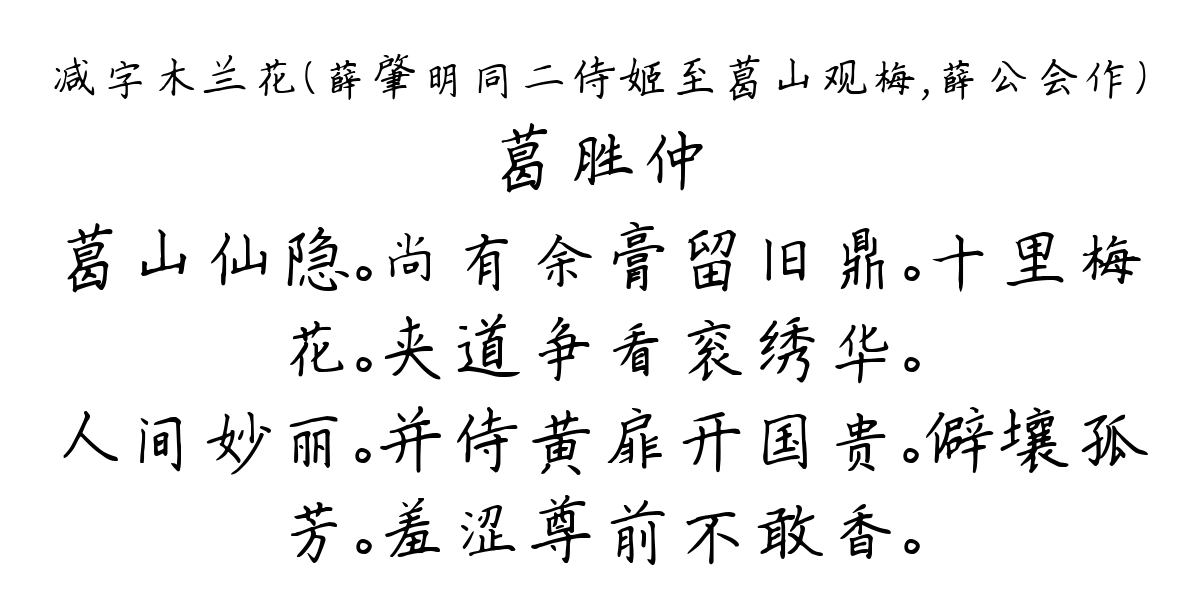 减字木兰花(薛肇明同二侍姬至葛山观梅,薛公会作)
葛胜仲
葛山仙隐。尚有余膏留旧鼎。十里梅
花。夹道争看衮绣华。
人间妙丽。并侍黄扉开国贵。僻壤孤
芳。羞涩尊前不敢香。